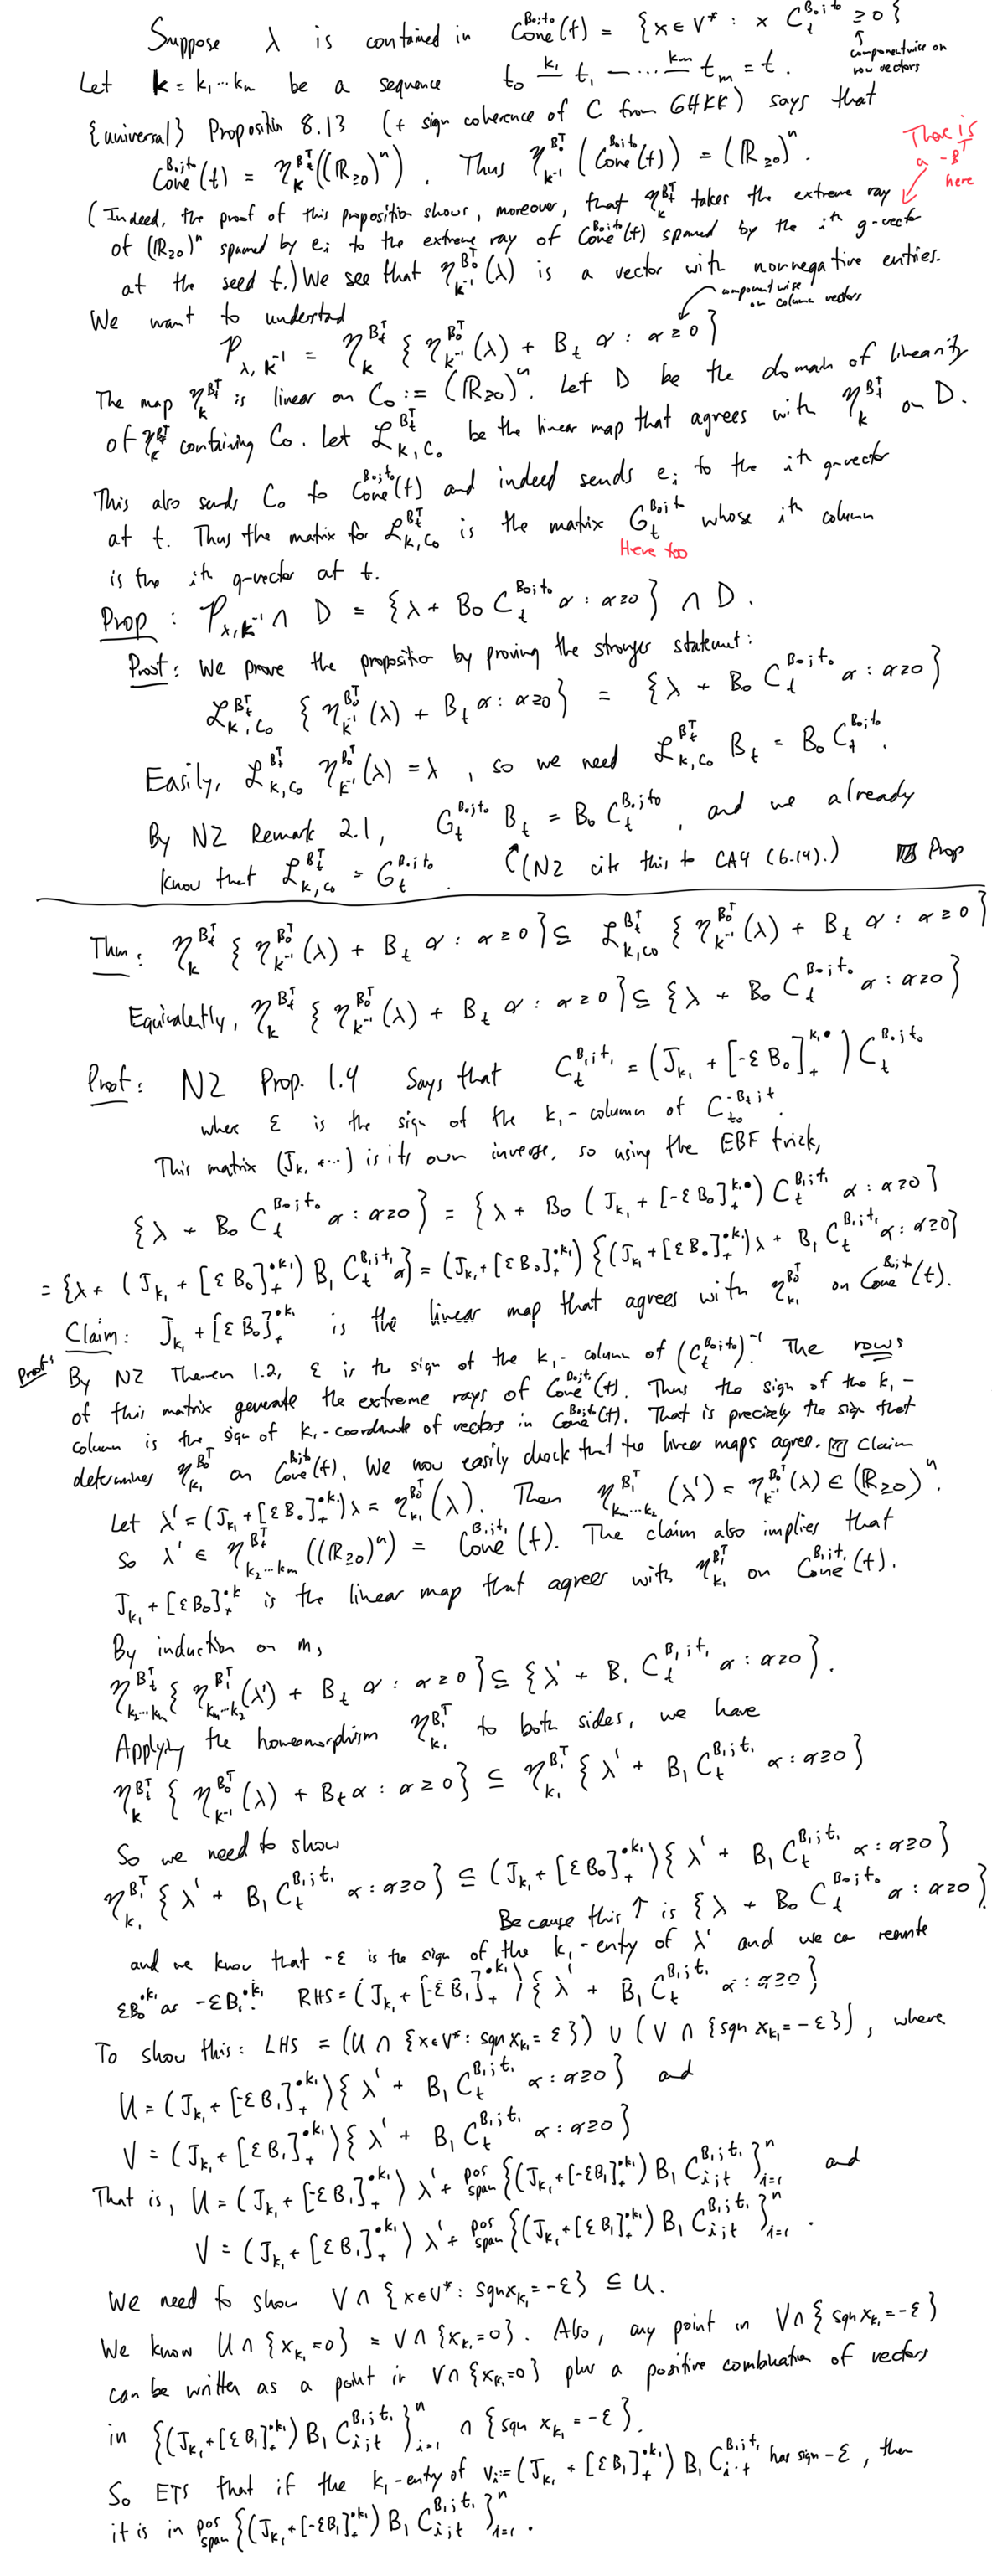 Suppose λ is contained in Cone^{B_0;t_0}(t) = {x ∈ V* : x C_t^{B_0;t_0} ≥ 0}
↑ componentwise on row vectors
Let k = k_1 ⋯ k_m be a sequence t_0 —k_1— t_1 — ⋯ —k_m— t_m = t.
{universal} Proposition 8.13 (+ sign coherence of C from GHKK) says that
Cone^{B_0;t_0}(t) = η_k^{B_t^T}((ℝ_{≥0})^n). Thus η_{k^{-1}}^{B_0^T}(Cone^{B_0;t_0}(t)) = (ℝ_{≥0})^n.
There is a -B^T here
(Indeed, the proof of this proposition shows, moreover, that η_k^{B_t^T} takes the extreme ray
of (ℝ_{≥0})^n spanned by e_i to the extreme ray of Cone^{B_0;t_0}(t) spanned by the i^{th} g-vector
at the seed t.) We see that η_{k^{-1}}^{B_0^T}(λ) is a vector with nonnegative entries.
We want to understad
componentwise on column vectors
P_{λ,k^{-1}} = η_k^{B_t^T} { η_{k^{-1}}^{B_0^T}(λ) + B_t α : α ≥ 0 }
The map η_k^{B_t^T} is linear on C_0 := (ℝ_{≥0})^n. Let D be the domain of linearity
of η_k^{B_t^T} containing C_0. Let ℒ_{k,C_0}^{B_t^T} be the linear map that agrees with η_k^{B_t^T} on D.
This also sends C_0 to Cone^{B_0;t_0}(t) and indeed sends e_i to the i^{th} g-vector
at t. Thus the matrix for ℒ_{k,C_0}^{B_t^T} is the matrix G_t^{B_0;t_0} whose i^{th} column
Here too
is the i^{th} g-vector at t.
Prop: P_{λ,k^{-1}} ∩ D = {λ + B_0 C_t^{B_0;t_0} α : α ≥ 0} ∩ D.
Proof: We prove the proposition by proving the stronger statement:
ℒ_{k,C_0}^{B_t^T} { η_{k^{-1}}^{B_0^T}(λ) + B_t α : α ≥ 0 } = {λ + B_0 C_t^{B_0;t_0} α : α ≥ 0}
Easily, ℒ_{k,C_0}^{B_t^T} η_{k^{-1}}^{B_0^T}(λ) = λ, so we need ℒ_{k,C_0}^{B_t^T} B_t = B_0 C_t^{B_0;t_0}.
By NZ Remark 2.1, G_t^{B_0;t_0} B_t = B_0 C_t^{B_0;t_0}, and we already
know that ℒ_{k,C_0}^{B_t^T} = G_t^{B_0;t_0}. ↑(NZ cite this to CA4 (6.14).) ▨ Prop
Thm: η_k^{B_t^T} { η_{k^{-1}}^{B_0^T}(λ) + B_t α : α ≥ 0 } ⊆ ℒ_{k,C_0}^{B_t^T} { η_{k^{-1}}^{B_0^T}(λ) + B_t α : α ≥ 0 }
Equivalently, η_k^{B_t^T} { η_{k^{-1}}^{B_0^T}(λ) + B_t α : α ≥ 0 } ⊆ {λ + B_0 C_t^{B_0;t_0} α : α ≥ 0}
Proof: NZ Prop. 1.4 says that C_t^{B_1;t_1} = (J_{k_1} + [-ε B_0]_+^{k_1•}) C_t^{B_0;t_0}
where ε is the sign of the k_1-column of C_{t_0}^{-B_t;t}.
This matrix (J_{k_1} + ⋯) is its own inverse, so using the EBF trick,
{λ + B_0 C_t^{B_0;t_0} α : α ≥ 0} = {λ + B_0 (J_{k_1} + [-ε B_0]_+^{k_1•}) C_t^{B_1;t_1} α : α ≥ 0}
= {λ + (J_{k_1} + [ε B_0]_+^{•k_1}) B_1 C_t^{B_1;t_1} α} = (J_{k_1} + [ε B_0]_+^{•k_1}) {(J_{k_1} + [ε B_0]_+^{•k_1}) λ + B_1 C_t^{B_1;t_1} α : α ≥ 0}
Claim: J_{k_1} + [ε B_0]_+^{•k_1} is the linear map that agrees with η_{k_1}^{B_0^T} on Cone^{B_0;t_0}(t).
Proof: By NZ Theorem 1.2, ε is the sign of the k_1-column of (C_t^{B_0;t_0})^{-1}. The rows
of this matrix generate the extreme rays of Cone^{B_0;t_0}(t). Thus the sign of the k_1-
column is the sign of k_1-coordinate of vectors in Cone^{B_0;t_0}(t). That is precisely the sign that
determines η_{k_1}^{B_0^T} on Cone^{B_0;t_0}(t). We now easily check that the linear maps agree. ▨ Claim
Let λ' = (J_{k_1} + [ε B_0]_+^{•k_1}) λ = η_{k_1}^{B_0^T}(λ). Then η_{k_m⋯k_2}^{B_1^T}(λ') = η_{k^{-1}}^{B_0^T}(λ) ∈ (ℝ_{≥0})^n.
So λ' ∈ η_{k_2⋯k_m}^{B_t^T}((ℝ_{≥0})^n) = Cone^{B_1;t_1}(t). The claim also implies that
J_{k_1} + [ε B_0]_+^{•k} is the linear map that agrees with η_{k_1}^{B_1^T} on Cone^{B_1;t_1}(t).
By induction on m,
η_{k_2⋯k_m}^{B_t^T} { η_{k_m⋯k_2}^{B_1^T}(λ') + B_t α : α ≥ 0 } ⊆ {λ' + B_1 C_t^{B_1;t_1} α : α ≥ 0}.
Applying the homeomorphism η_{k_1}^{B_1^T} to both sides, we have
η_k^{B_t^T} { η_{k^{-1}}^{B_0^T}(λ) + B_t α : α ≥ 0 } ⊆ η_{k_1}^{B_1^T} {λ' + B_1 C_t^{B_1;t_1} α : α ≥ 0}
So we need to show
η_{k_1}^{B_1^T} {λ' + B_1 C_t^{B_1;t_1} α : α ≥ 0} ⊆ (J_{k_1} + [ε B_0]_+^{•k_1}) {λ' + B_1 C_t^{B_1;t_1} α : α ≥ 0}
Because this ↑ is {λ + B_0 C_t^{B_0;t_0} α : α ≥ 0}
and we know that -ε is the sign of the k_1-entry of λ' and we can rewrite
ε B_0^{•k_1} as -ε B_1^{•k_1}. RHS = (J_{k_1} + [-ε B_1]_+^{•k_1}) {λ' + B_1 C_t^{B_1;t_1} α : α ≥ 0}
To show this: LHS = (U ∩ {x ∈ V* : sgn x_{k_1} = ε}) ∪ (V ∩ {sgn x_{k_1} = -ε}), where
U = (J_{k_1} + [-ε B_1]_+^{•k_1}) {λ' + B_1 C_t^{B_1;t_1} α : α ≥ 0} and
V = (J_{k_1} + [ε B_1]_+^{•k_1}) {λ' + B_1 C_t^{B_1;t_1} α : α ≥ 0}
That is, U = (J_{k_1} + [-ε B_1]_+^{•k_1}) λ' + pos span {(J_{k_1} + [-ε B_1]_+^{•k_1}) B_1 C_{i;t}^{B_1;t_1}}_{i=1}^n and
V = (J_{k_1} + [ε B_1]_+^{•k_1}) λ' + pos span {(J_{k_1} + [ε B_1]_+^{•k_1}) B_1 C_{i;t}^{B_1;t_1}}_{i=1}^n.
We need to show V ∩ {x ∈ V* : sgn x_{k_1} = -ε} ⊆ U.
We know U ∩ {x_{k_1} = 0} = V ∩ {x_{k_1} = 0}. Also, any point in V ∩ {sgn x_{k_1} = -ε}
can be written as a point in V ∩ {x_{k_1} = 0} plus a positive combination of vectors
in {(J_{k_1} + [ε B_1]_+^{•k_1}) B_1 C_{i;t}^{B_1;t_1}}_{i=1}^n ∩ {sgn x_{k_1} = -ε}.
So ETS that if the k_1-entry of v_i := (J_{k_1} + [ε B_1]_+^{•k_1}) B_1 C_{i;t}^{B_1;t_1} has sign -ε, then
it is in pos span {(J_{k_1} + [-ε B_1]_+^{•k_1}) B_1 C_{i;t}^{B_1;t_1}}_{i=1}^n.